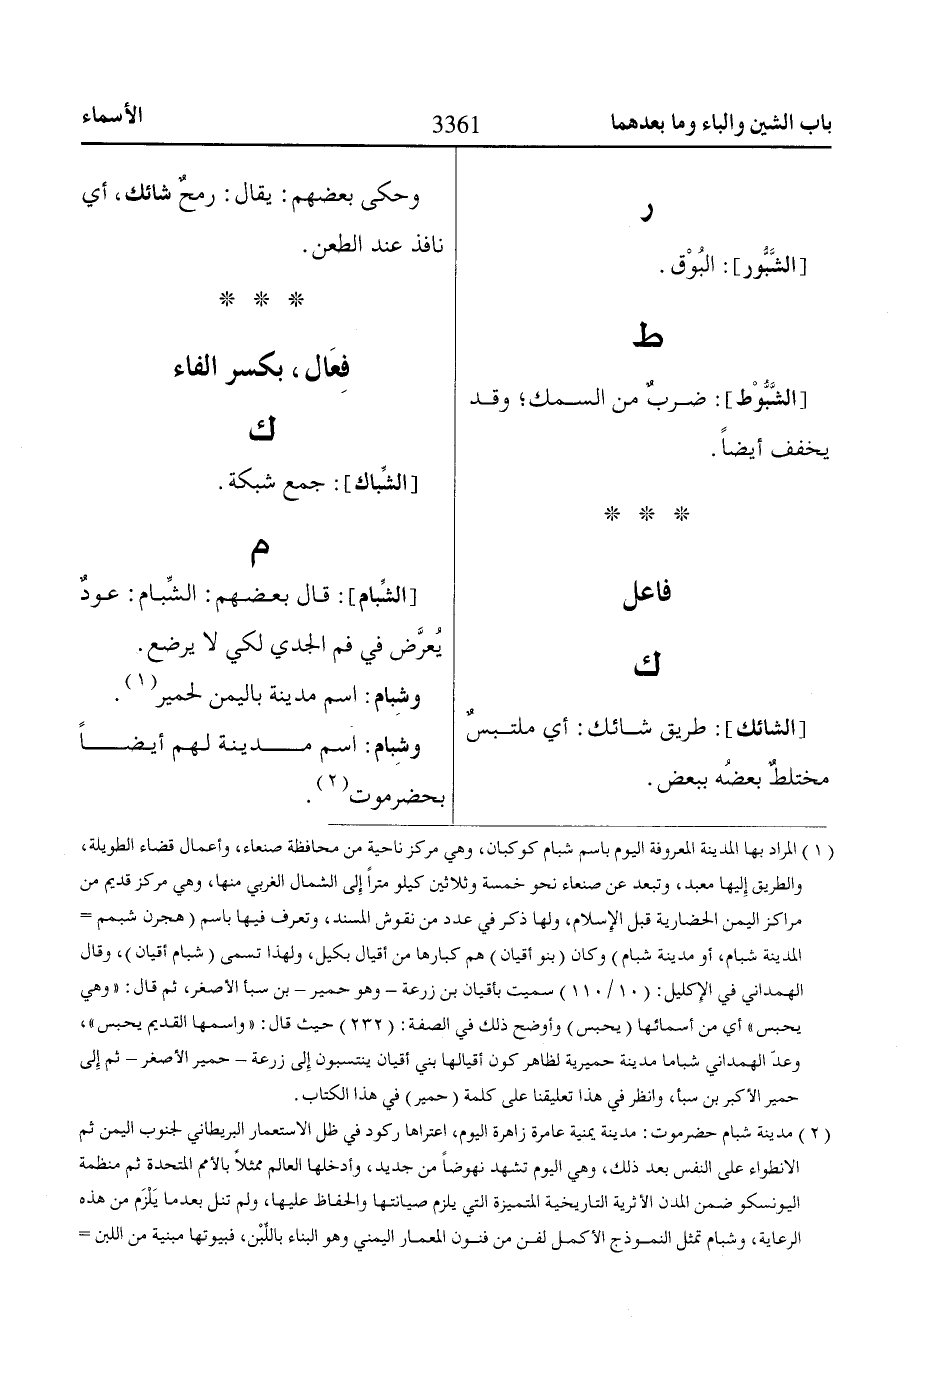 باب الشين والباء وما بعدهما
3361
الأسماء
ر
[الشَّبُّور]: البُوْق.
ط
[الشَّبُّوْط]: ضربٌ من السمك؛ وقد
يخفف أيضاً.
* * *
فاعل
ك
[الشائك]: طريق شائك: أي ملتبسٌ
مختلطٌ بعضُه ببعض.
وحكى بعضهم: يقال: رمحٌ شائك، أي
نافذ عند الطعن.
* * *
فِعَال، بكسر الفاء
ك
[الشِّباك]: جمع شبكة.
م
[الشِّبام]: قال بعضهم: الشِّبام: عودٌ
يُعرَّض في فم الجدي لكي لا يرضع.
وشِبام: اسم مدينة باليمن لحمير(١).
وشِبام: اسم مدينة لهم أيضاً
بحضرموت(٢).
(١) المراد بها المدينة المعروفة اليوم باسم شبام كوكبان، وهي مركز ناحية من محافظة صنعاء، وأعمال قضاء الطويلة،
والطريق إليها معبد، وتبعد عن صنعاء نحو خمسة وثلاثين كيلو متراً إلى الشمال الغربي منها، وهي مركز قديم من
مراكز اليمن الحضارية قبل الإسلام، ولها ذكر في عدد من نقوش المسند، وتعرف فيها باسم (هجرن شبمم =
المدينة شبام، أو مدينة شبام) وكان (بنو أقيان) هم كبارها من أقيال بكيل، ولهذا تسمى (شبام أقيان)، وقال
الهمداني في الإكليل: (١٠/ ١١٠) سميت بأقيان بن زرعة – وهو حمير – بن سبأ الأصغر، ثم قال: «وهي
يحبس» أي من أسمائها (يحبس) وأوضح ذلك في الصفة: (٢٣٢) حيث قال: «واسمها القديم يحبس»،
وعدّ الهمداني شباما مدينة حميرية لظاهر كون أقيالها بني أقيان ينتسبون إلى زرعة – حمير الأصغر – ثم إلى
حمير الأكبر بن سبأ، وانظر في هذا تعليقنا على كلمة (حمير) في هذا الكتاب.
(٢) مدينة شبام حضرموت: مدينة يمنية عامرة زاهرة اليوم، اعتراها ركود في ظل الاستعمار البريطاني لجنوب اليمن ثم
الانطواء على النفس بعد ذلك، وهي اليوم تشهد نهوضاً من جديد، وأدخلها العالم ممثلاً بالأمم المتحدة ثم منظمة
اليونسكو ضمن المدن الأثرية التاريخية المتميزة التي يلزم صيانتها والحفاظ عليها، ولم تنل بعدما يَلْزَم من هذه
الرعاية، وشبام تمثل النموذج الأكمل لفن من فنون المعمار اليمني وهو البناء باللَّبْن، فبيوتها مبنية من اللبن =